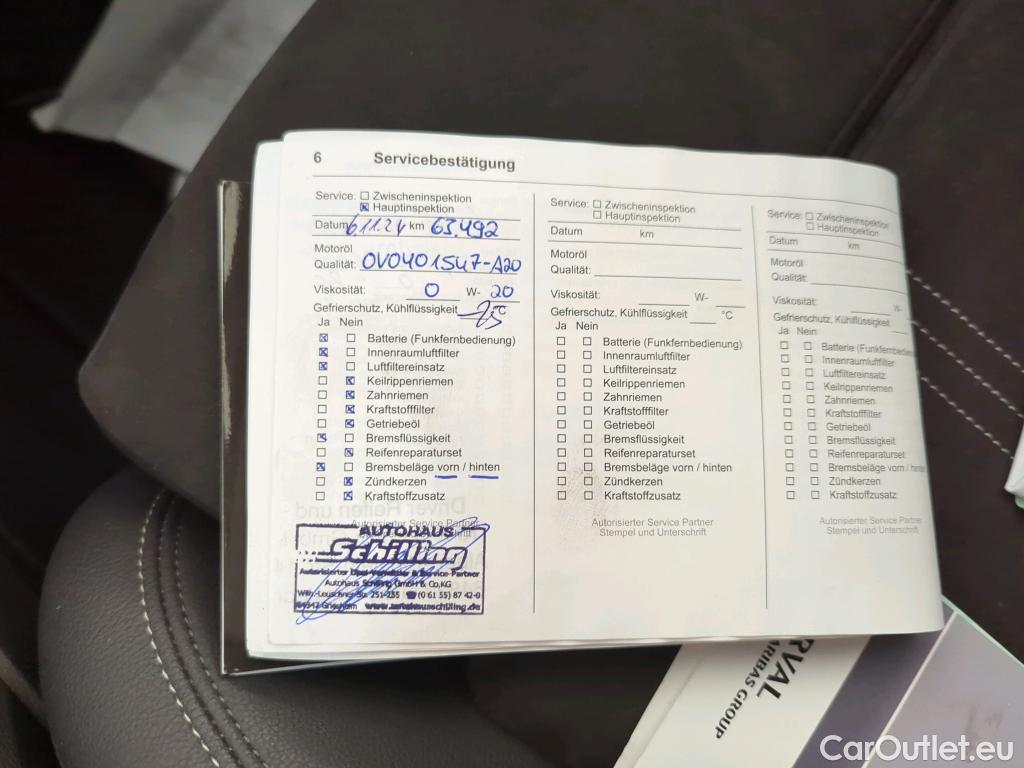 6 Servicebestätigung
Service: Zwischeninspektion
Hauptinspektion
Datum 6.11.24 km 63.492
Motoröl
Qualität: OVO401547-A20
Viskosität: 0 W- 20
Gefrierschutz, Kühlflüssigkeit °C
Ja Nein
Batterie (Funkfernbedienung)
Innenraumluftfilter
Luftfiltereinsatz
Keilrippenriemen
Zahnriemen
Kraftstofffilter
Getriebeöl
Bremsflüssigkeit
Reifenreparaturset
Bremsbeläge vorn / hinten
Zündkerzen
Kraftstoffzusatz
Autorisierter Service Partner
AUTOHAUS
Schilling
Autorisierter Opel Vermittler & Service-Partner
Autohaus Schilling GmbH & Co.KG
Wilh.-Leuschner-Str. 251-255 ☎(0 61 55) 87 42-0
64347 Griesheim www.autohausschilling.de
Service: Zwischeninspektion
Hauptinspektion
Datum km
Motoröl
Qualität:
Viskosität: W-
Gefrierschutz, Kühlflüssigkeit °C
Ja Nein
Batterie (Funkfernbedienung)
Innenraumluftfilter
Luftfiltereinsatz
Keilrippenriemen
Zahnriemen
Kraftstofffilter
Getriebeöl
Bremsflüssigkeit
Reifenreparaturset
Bremsbeläge vorn / hinten
Zündkerzen
Kraftstoffzusatz
Autorisierter Service Partner
Stempel und Unterschrift
Service: Zwischeninspektion
Hauptinspektion
Datum km
Motoröl
Qualität:
Viskosität: W-
Gefrierschutz, Kühlflüssigkeit
Ja Nein
Batterie (Funkfernbedien
Innenraumluftfilter
Luftfiltereinsatz
Keilrippenriemen
Zahnriemen
Kraftstofffilter
Getriebeöl
Bremsflüssigkeit
Reifenreparaturset
Bremsbeläge vorn / hinten
Zündkerzen
Kraftstoffzusatz
Autorisierter Service Partner
Stempel und Unterschrift
RVAL
ARIBAS GROUP
CarOutlet.eu